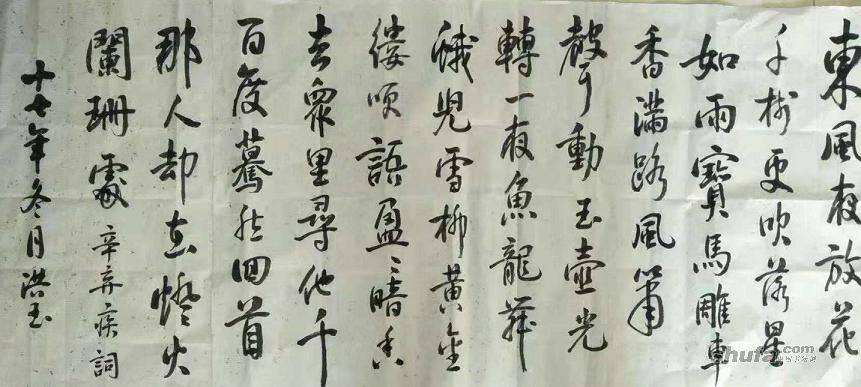 東風夜放花
千樹更吹落星
如雨寶馬雕車
香滿路風簫
聲動玉壺光
轉一夜魚龍舞
蛾兒雪柳黃金
縷咲語盈〻暗香
去眾里尋他千
百度驀然回首
那人却在燈火
闌珊處辛弃疾詞
十七年冬月洪玉
shufa.com